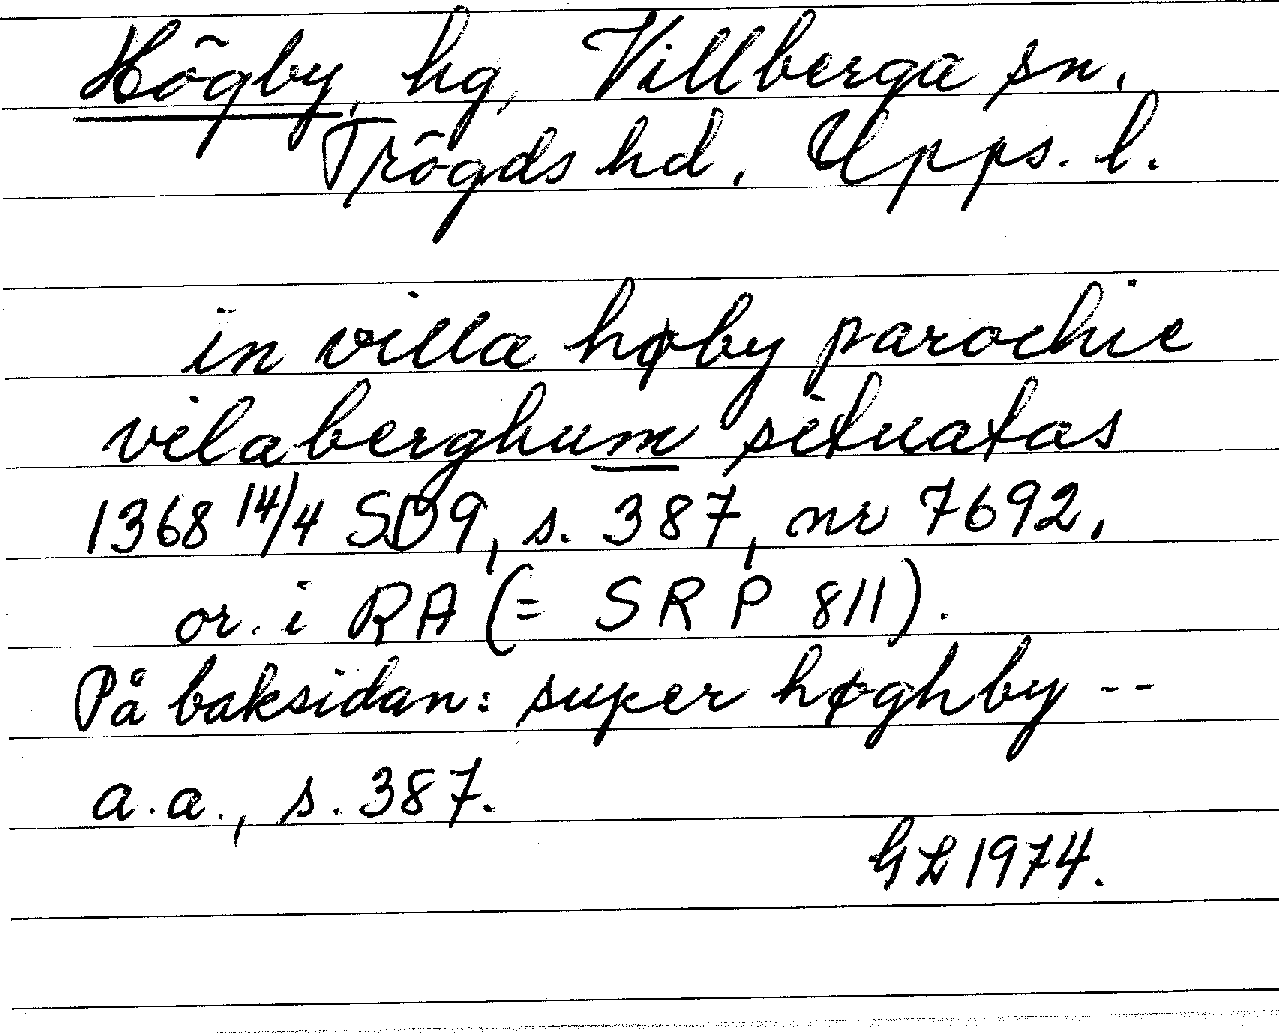 Högby, hg, Villberga sn.
Trögds hd, Upps. l.
in villa høby parochie
vilaberghum situatas
1368 14/4 SD9, s. 387, nr 7692,
or. i RA (= SRP 811).
På baksidan: super høghby --
a.a., s. 387.
GL 1974.